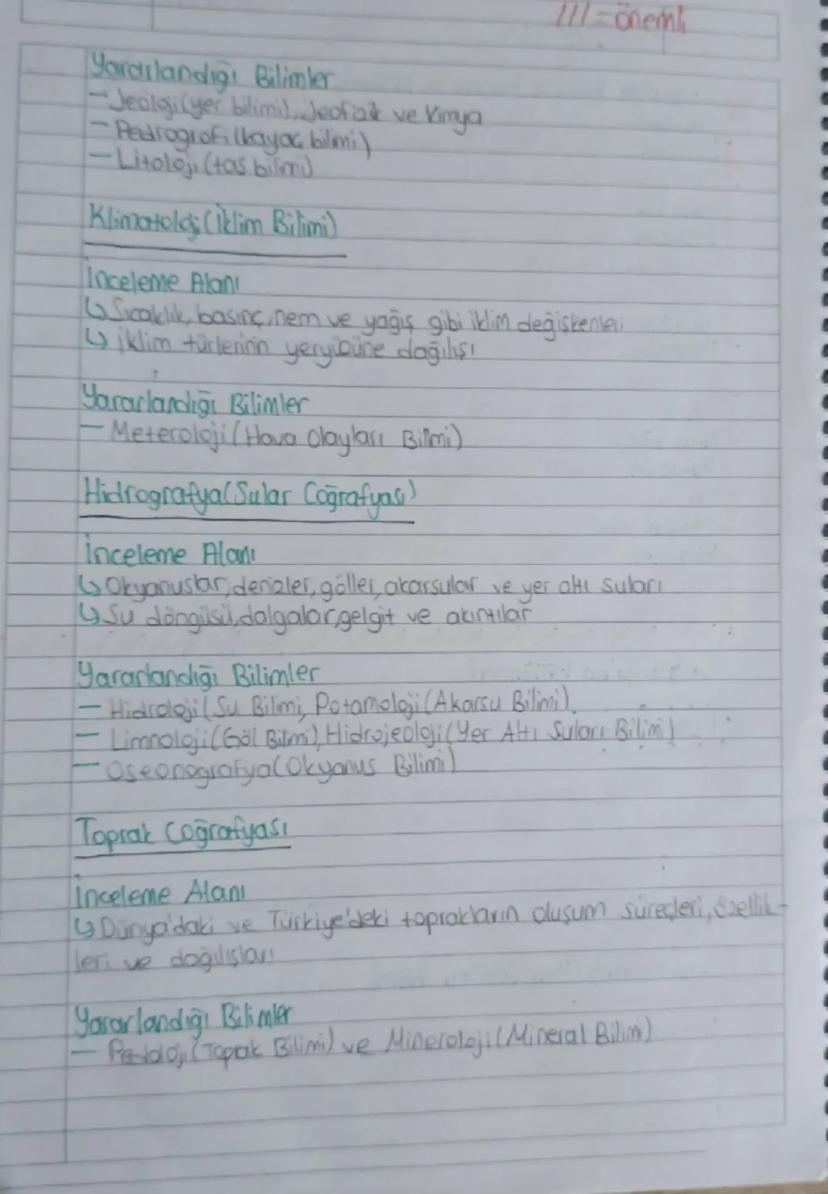 /// = önemli
Yararlandığı Bilimler
- Jeolgi(yer bilimi), Jeofizik ve Kimya
- Pedrografi(kayaç bilimi)
- Litoloji (taş bilimi)
Klimatoloji(İklim Bilimi)
İnceleme Alanı
↳ Sıcaklık, basınç, nem ve yağış gibi iklim değişkenleri
↳ iklim türlerinin yeryüzüne dağılışı
Yararlandığı Bilimler
- Meteroloji(Hava Olayları Bilimi)
Hidrografya(Sular Coğrafyası)
İnceleme Alanı
↳ Okyanuslar, denizler, göller, akarsular ve yer altı suları
↳ Su döngüsü, dalgalar, gelgit ve akıntılar
Yararlandığı Bilimler
- Hidroloji(Su Bilimi, Potamoloji(Akarsu Bilimi)
- Limnoloji(Göl Bilimi), Hidrojeoloji(Yer Altı Suları Bilimi)
- Oseonografya(Okyanus Bilimi)
Toprak Coğrafyası
İnceleme Alanı
↳ Dünya'daki ve Türkiye'deki toprakların oluşum süreçleri, özellik-
leri ve dağılışları
Yararlandığı Bilimler
- Pedoloji(Toprak Bilimi) ve Mineroloji(Mineral Bilimi)